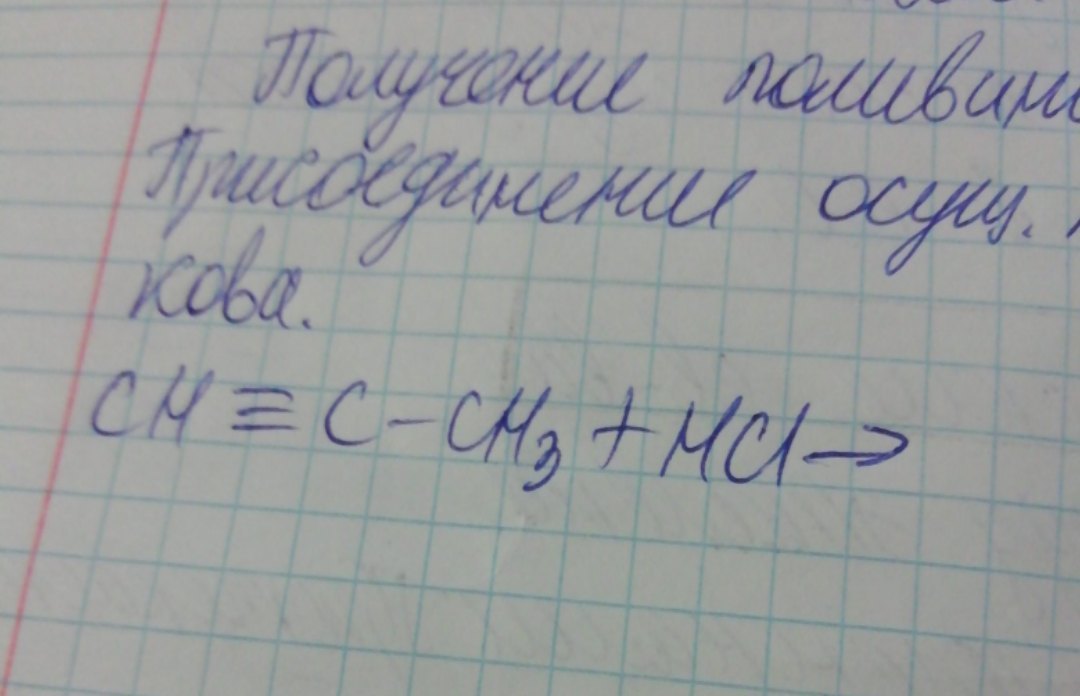 Получение поливини
Присоединение осущ.
кова.
CH ≡ C – CH₃ + HCl →